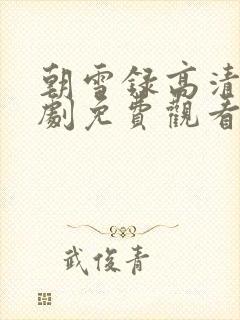 朝雪録高清
劇免費觀看
武俊青